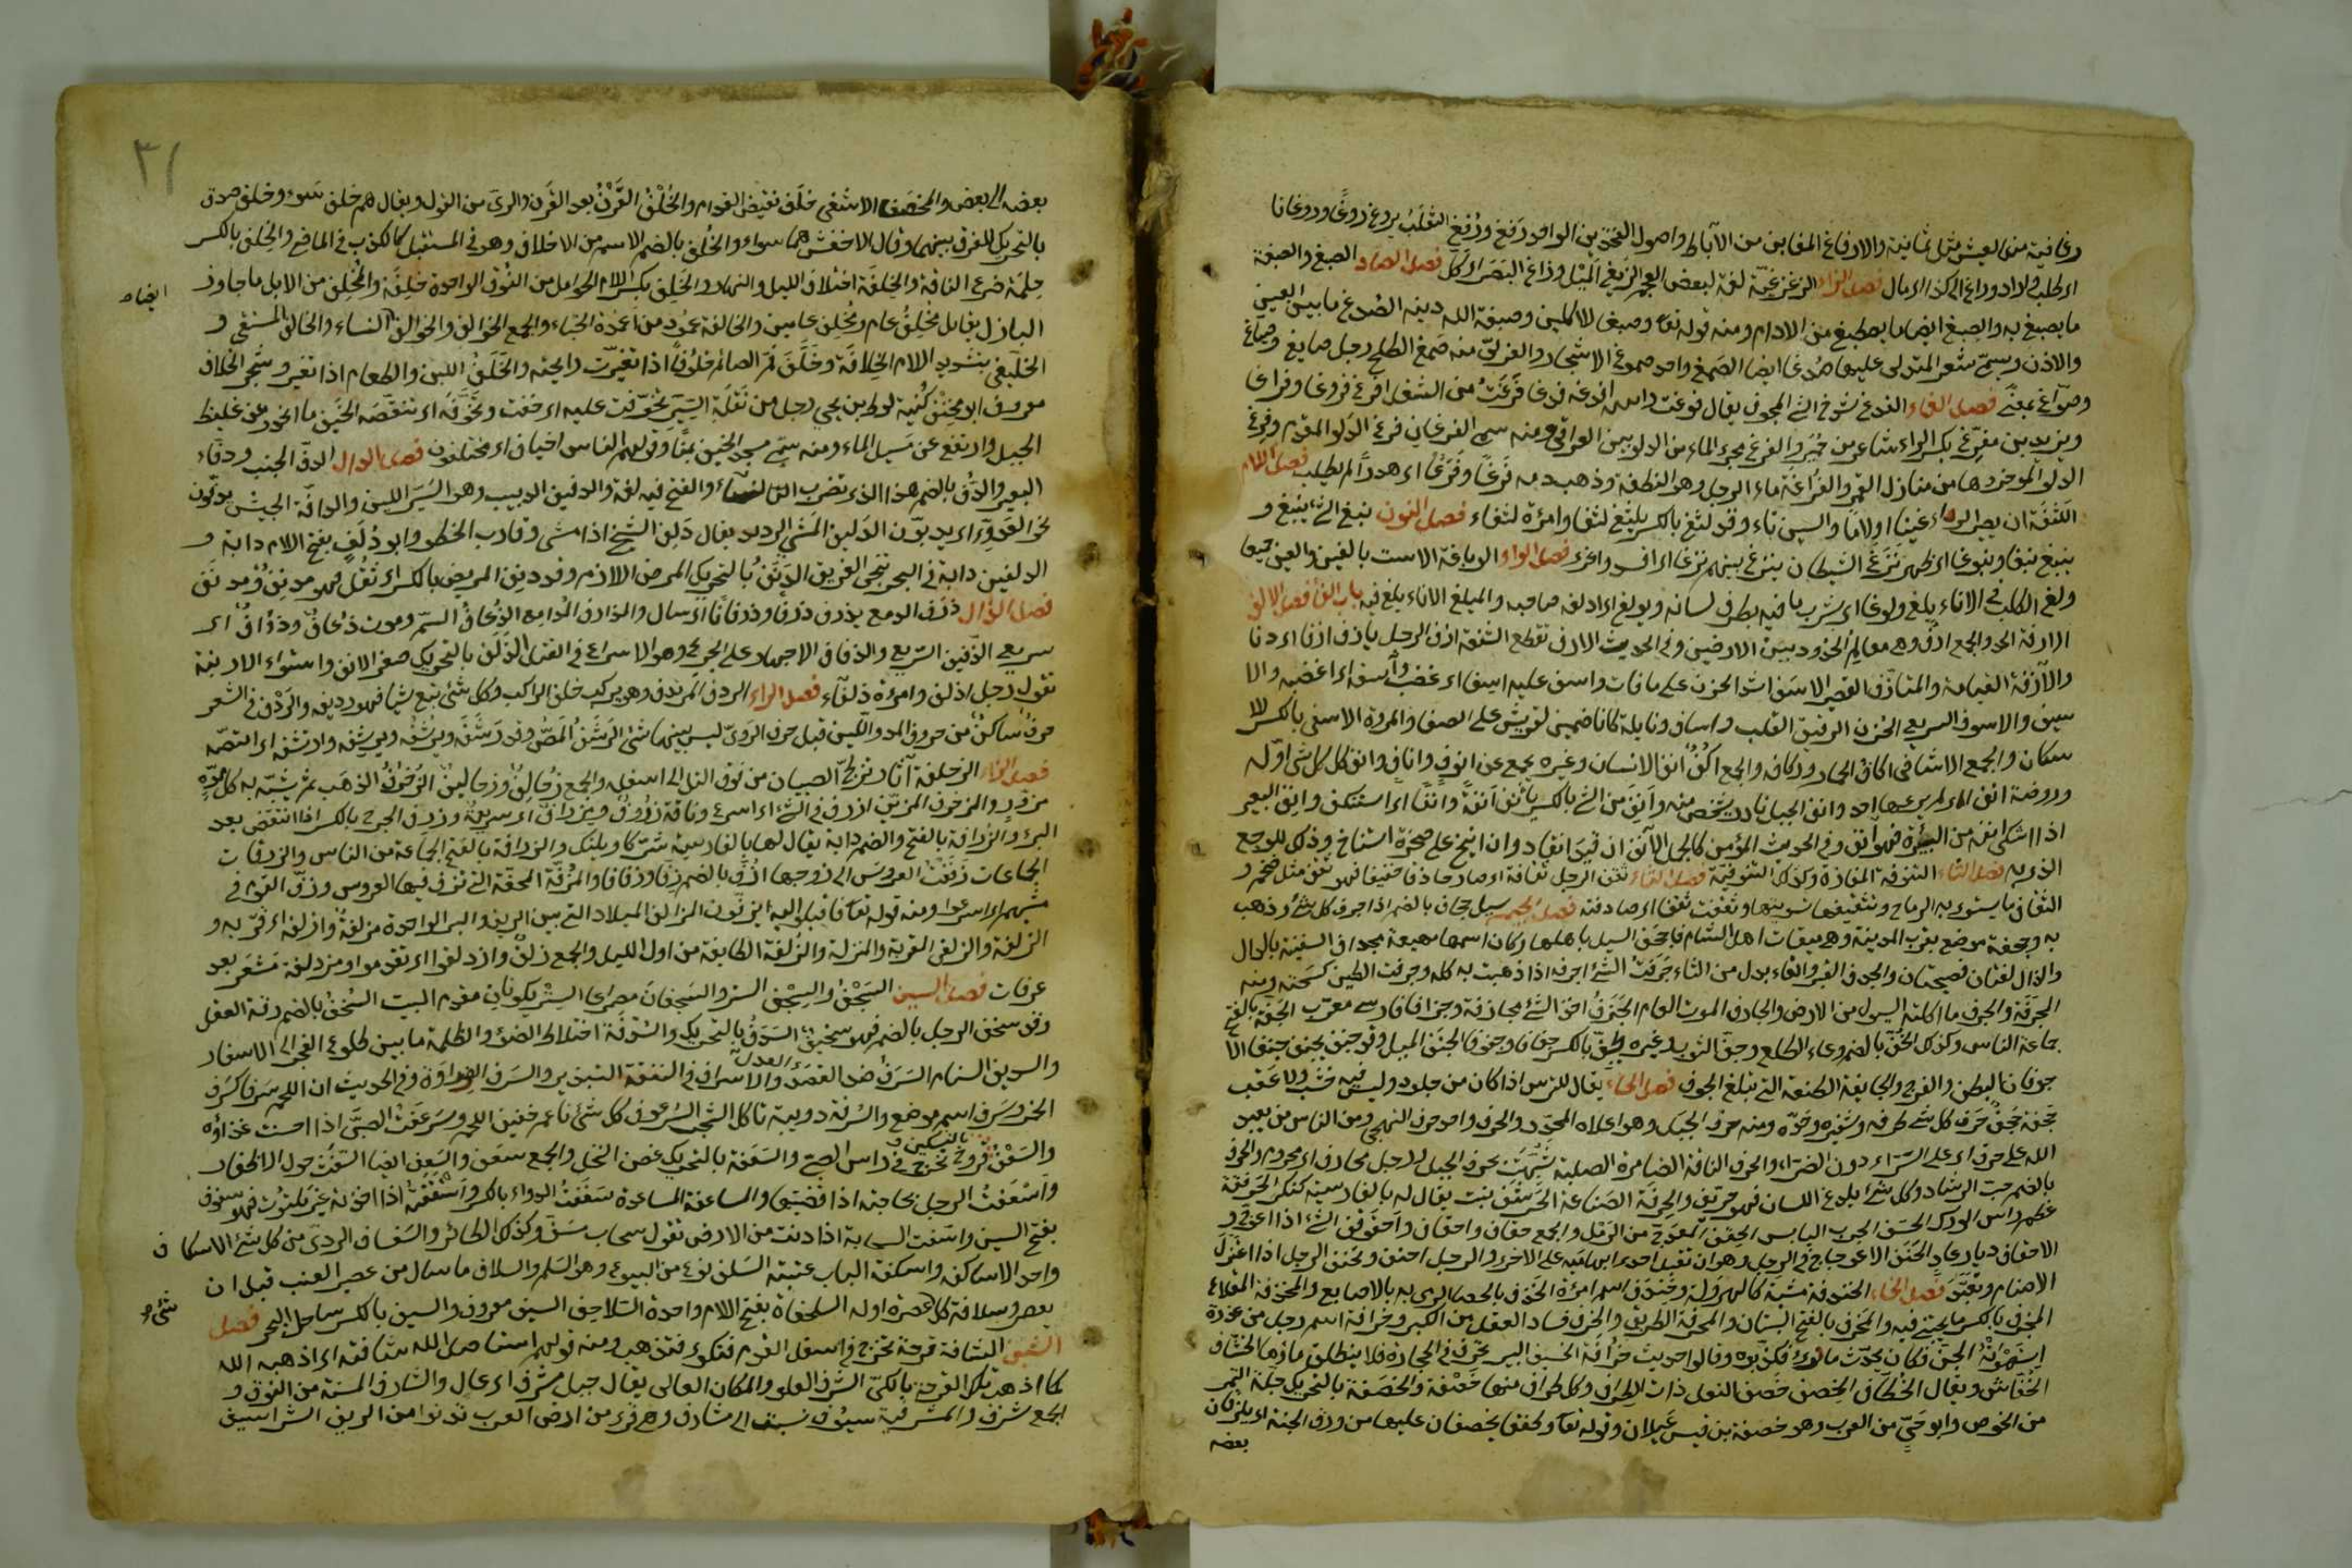 رفاغية من العيش مثل ثمانية والارفاغ المغابن من الآباط واصول الفخذين الواحد رَفغ ورُفغ الثعلب يروغ روغًا وروغانا
اى طلب فى لاد وراغ الى كذا اى مال فصل الزاء الزغزغيّة لغة لبعض العجم الزيغ الميل وزاغ البصر اى كَلّ فصل الصاد الصبغ والصبغة
ما يصبغ به والصبغ ايضا ما يصطبغ من الادام ومنه قوله تعا وصبغ للآكلين وصبغة الله دينه الصُدغ ما بين العين
والاذن ويسمّى شعر المتدلى عليها صُدغا ايضا الصمغ واحد صموغ الاشجار والعربىّ منه صَمغ الطلح رجل صايغ وصبّاغ
وصوّاغ بمعنًى فصل الفاء الفدغ شدخ الشئ المجوف يقال فدغت راسه افدغه فدغا فَرَغتُ من الشغل افرغ فروغا وفراغا
ويزيد بن مفرّغ بكسر الراء شاعر من حِمير والفرغ مجرى الماء من الدلو بين العراقى ومنه سمى الفرغان فرغ الدلو المقدم وفرغ
الدلو المؤخر وهما من منازل القمر والفُراغة ماء الرجل وهو النطفة وذهب دمه فَرغًا وفِرغًا اى هدرًا لم يطلب فصل اللام
اللثغة ان يصير الراء غينا او لامًا والسين ثاء وقد لثغ بالكسر يلثغ لثغا وامرءة لثغاء فصل النون نبغ الشئ ينبغ و
ينبغ نبغا ونبوغا اى ظهر نَزَغَ الشيطان ينزغ بينهم نزغا اى افسد واغرى فصل الواو الوباغة الاست بالغين والعين جميعا
ولغ الكلب فى الاناء يلغ ولوغا اى شرب ما فيه بطرف لسانه ويولغ اى اولغه صاحبه والميلغ الاناء يلغ فيه باب الفاء فصل الالف
الارفة الحد والجمع ارف وهى معالم الحدود بين الارضين وفى الحديث الارف تقطع الشفعة ازف الرحيل يازف ازفا اى دنا
والآزفة القيامة والمتآزف القصير الاسف اشد الحزن على ما فات واسف عليه اسفا اى غضب وآسفه اى اغضبه والا
سيف والاسوف السريع الحزن الرقيق القلب واساف ونايلة كانا صنمين لقريش على الصفا والمروة الاسفى بالكسر للا
سكاف والجمع الاشافى اكاف الحمار ووكافه والجمع اكُف انف الانسان وغيره يجمع عن انوف وآناف وانف كل شئ اوّله
وروضة انف اى لم يرعها احد وانف الجبل نادر يشخص منه وانِف من الشئ بالكسر يأنف انفة وانفًا اى استنكف وانِف البعير
اذا اشتكى انفه من البُرة فهو انف وفى الحديث المؤمن كالجمل الآنف ان قيد انقاد وان انيخ على صخرة استناخ وذلك للوجع
الذى به فصل التاء التنوفة المفازة وكذلك التنوفيّة فصل الثاء ثقف الرجل ثقافة اى صار حاذقا خفيفا فهو ثقف مثل ضخم و
الثقاف ما يسوى به الرماح وتثقيفها تسويتها وثقفته ثقفا اى صادفته فصل الجيم سيل جحاف بالضم اذا جرف كل شئ وذهب
به وجحفة موضع بقرب المدينة وهى ميقات اهل الشام فاجحف السيل باهلها وكان اسمها مهيعة مجداف السفينة بالدال
والذال لغتان فصيحتان والجدف القبر والفاء بدل من الثاء جَرَفتُ الشئ اجرفه اذا ذهبت به كله وجرفت الطين كسحته ومنه
المجرفة والجرف ما اكلته السيول من الارض والجارف الموت العام الجَزفُ اخذ الشئ مجازفة وجزافا فارسى معرّب الجفة بالفتح
جماعة الناس وكذلك الجُفّ بالضم وعاء الطلع وجفّ الثوب وغيره يجفّ بالكسر جفافا وجفوفا الجنف الميل وقد جنف يجنف جنفا الا
جوفان البطن والفرج والجايفة الطعنة التى تبلغ الجوف فصل الحاء يقال للترس اذا كان من جلود وليس فيه خشب ولا عقب
حجفة حَجَف حَرف كل شئ طرفه وشفيره وحدّه ومنه حرف الجبل وهو اعلاه المحدد والحرف واحد حروف التهجى ومن الناس من يعبد
الله على حرف اى على السرّاء دون الضراء والحرف الناقة الضامرة الصلبة شبّهت بحرف الجبل رجل محارف اى محروم والحرف
بالضم حب الرشاد وكل شئ يلذع اللسان فهو حرّيف والحرفة الصناعة الحَرشَف نبت يقال له بالفارسية كنكر الحرقفة
عظم راس الورك الحسف الجرب اليابس الحِقف المعوج من الرمل والجمع حقاف واحقاف واحقوقف الشئ اذا اعوج و
الاحقاف ديار عاد الحَنَف الاعوجاج فى الرجل وهو ان تقبل احدى ابهاميه على الاخرى والرجل احنف وتحنف الرجل اذا اعتزل
الاصنام وتعبّد فصل الخاء الخندفة مشية كالهرولة وخندف اسم امرءة الخذف بالحصا الرمى به بالاصابع والمخذفة المقلاع
المخرف بالكسر ما يجتنى فيه والمخرف بالفتح البستان والمخرفة الطريق والخرف فساد العقل من الكبر وخرافة اسم رجل من عذرة
استهوته الجن فكان يحدّث ما رأى فكذبوه وقالوا حديث خُرافة الخسيف البير تحفر فى الحجارة فلا ينقطع ماءها الخشّاف
الخفّاش ويقال الخطاف الخصف خصف النعل ذات الطراق وكل طراق منها خصفة والخصفة بالتحريك جلّة التمر
من الخوص وابو حىّ من العرب وهو خصفة بن قيس عيلان وقوله تعا وطفقا يخصفان عليهما من ورق الجنة اى يلزقان
بعضه
٣١
بعضه الى بعض والمخصف الاشفى خلَف نقيض القدام والخَلْفُ القَرْنُ بعد القَرن والردى من القول ويقال هم خلف سَوء وخلف صدق
بالتحريك للفرق بينهما وقال الاخفش هما سواء والخُلف بالضم الاسم من الاخلاف وهو فى المستقبل كالكذب فى الماضى والخِلف بالكسر
حلمة ضرع الناقة والخِلفة اختلاف الليل والنهار والخَلِف بكسر اللام الحوامل من النوق الواحدة خَلِفَة والمُخلِف من الابل ما جاوز
ايضاء
البازل يقال مخلِفُ عام ومخلِف عامين والخالفة عمود من اعمدة الخباء والجمع الخوالف والخوالف النساء والخالف المستقى و
الخلّيفى بتشديد اللام الخِلافَة وخلَف فم الصائم خلوفًا اذا تغيّرت رايحته والخَلَفُ اللبن والطعام اذا تغير وشجر الخلاف
معروف ابو مخنف كنية لوط بن يحيى رجل من نَقَلة السِيَر تخوّفت عليه اى خفت وتخوّفه اى تنقّصه الخَيف ما انحدر عن غليظ
الجبل وارتفع عن مسيل الماء ومنه سمّى مسجد الخيف بمنًا وقولهم الناس اخياف اى مختلفون فصل الدال الدفّ الجنب ودفّاء
البعير والدُفّ بالضم هذا الذى تضرب النساء والفتح فيه لغة والدفيف الدبيب وهو السَير الليّن والدافّة الجيش يدفّون
نحو العدوّ اى يدبّون الدَليف المشى الرويد يقال دَلف الشيخ اذا مشى وقارب الخطو وابو دُلَف بفتح اللام دابة و
الدلفين دابة فى البحر تنجى الغريق الدَنَفُ بالتحريك المرض اللازم وقد دنف المريض بالكسر اى ثقل فهو مدنف ومدنَف
فصل الذال ذرف الدمع يذرف ذرفا وذرفانا اى سال والمذارف المدامع الذُعاف السمّ وموت ذُعاف وذؤاف اى
سريع الذّفيف السريع والذفاف الاجهاد على الجريح وهو الاسراع فى القتل الذَلَف بالتحريك صغر الانف واستواء الارنبة
تقول رجل اذلف وامرءة ذلفاء فصل الراء الردف المرتدف وهو يركب خلف الراكب وكل شئ تبع شيا فهو ردفه والرّدف فى الشعر
حرفٌ ساكنٌ من حروف المد واللّين قبل حرف الروىّ ليس بينهما شئ الرشف المصّ وقد رشَفه يرشُفه ويرشِفه وارتشفه اى امتصّه
فصل الزاء الزحلفة آثار تزلّج الصبيان من فوق التل الى اسفله والجمع زُحالِف وزحاليف الزُخرُف الذهب ثم يشبّه به كل مموّه
مزوّر والمزخرف المزيّن ازرف فى الشئ اى اسرع وناقة زروف ومزراف اى سريعة وزرف الجرح بالكسر اذا انتقض بعد
البرء والزرافة بالفتح والضم دابة يقال لها بالفارسية شتر كاو پلنك والزرافة بالفتح الجماعة من الناس والزرافات
الجماعات زففت العروسَ الى زوجها ازفّ بالضم زفّا وزفافا والمزفّة المحفّة التى تزف فيها العروس وزفّ القوم فى
مشيهم اى اسرعوا ومنه قوله تعا فاقبلوا اليه يزفّون المزالف البلاد التى بين الريف والبر الواحدة مزلفة وازلفه اى قرّبه و
الزلفة والزلفى القربة والمنزلة والزلفة الطايفة من اول الليل والجمع زلف وازدلفوا اى تقدموا ومزدلفة مَشعر بعد
عرفات فصل السين السَجف والسِجف الستر والسَجفان مصراعا السِتر يكونان مقدم البيت السُخفُ بالضم رقة العقل
وقد سخف الرجل بالضم فهو سخيف السَدَف بالتحريك والسُدفة اختلاط الضوء والظلمة ما بين طلوع الفجر الى الاسفار
والسديف السنام السَرف ضد القصد والاسراف فى النفقة التبذير والسَرف الضراوة وفى الحديث ان للحم سرفا كسرف
الخمر وسَرِف اسم موضع والسُرفة دويبة تاكل الشجر السُرعوف كل شئ ناعم خفيف اللحم وسَرعَفتُ الصبىَّ اذا احسنت غذاؤه
والسَعفَة بالتسكين قروح تخرج فى راس الصبى والسَعَفة بالتحريك غصن النخل والجمع سَعَف والسعف ايضا التشقّق حول الاظفار
واسعَفتُ الرجل بحاجته اذا قضيتها والساعفة المساعدة سَفِفتُ الدواء بالكسر واستففته اذا اخذته غير ملتوت فهو سفوف
بفتح السين واسَفّت السحابة اذا دنت من الارض تقول سحاب مسفّ وكذلك الطائر والسَفساف الردى من كل شئ الاسكاف
واحد الاساكفة واسكفة الباب عتبته السَلَف نوع من البيوع وهو السَلَم والسلاف ما سال من عصير العنب قبل ان
يعصر وسلافة كل عصرة اوله السلحفاة بفتح اللام واحدة السلاحف السيف معروف والسيف بالكسر ساحل البحر فصل
شئ
الشين الشأفة قرحة تخرج فى اسفل القدم فتكوى فتذهب ومنه قولهم استاصل الله شافته اى اذهبه الله
كما اذهب تلك القرحة بالكىّ الشرف العلو والمكان العالى يقال جبل مشرف اى عال والشارف المسنة من النوق و
الجمع شُرُف والمشرفية سيوف نسبت الى مشارف وهى قرى من ارض العرب تدنوا من الريف الشراسيف